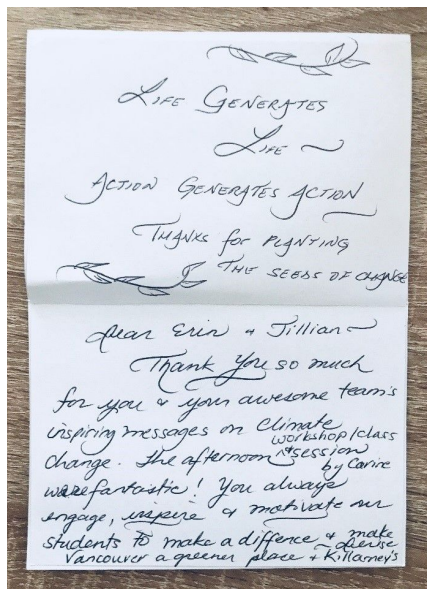 LIFE GENERATES
LIFE ~
ACTION GENERATES ACTION
THANKS for PLANTING
THE SEEDS OF CHANGE
Dear Erin & Jillian ~
Thank you so much
for you & your awesome team's
inspiring messages on climate
workshop/class
change. The afternoon session
by Carire
were fantastic! You always
engage, inspire & motivate our
students to make a diffence & make
Vancouver a greener place ~ Denise
+ Killarney's